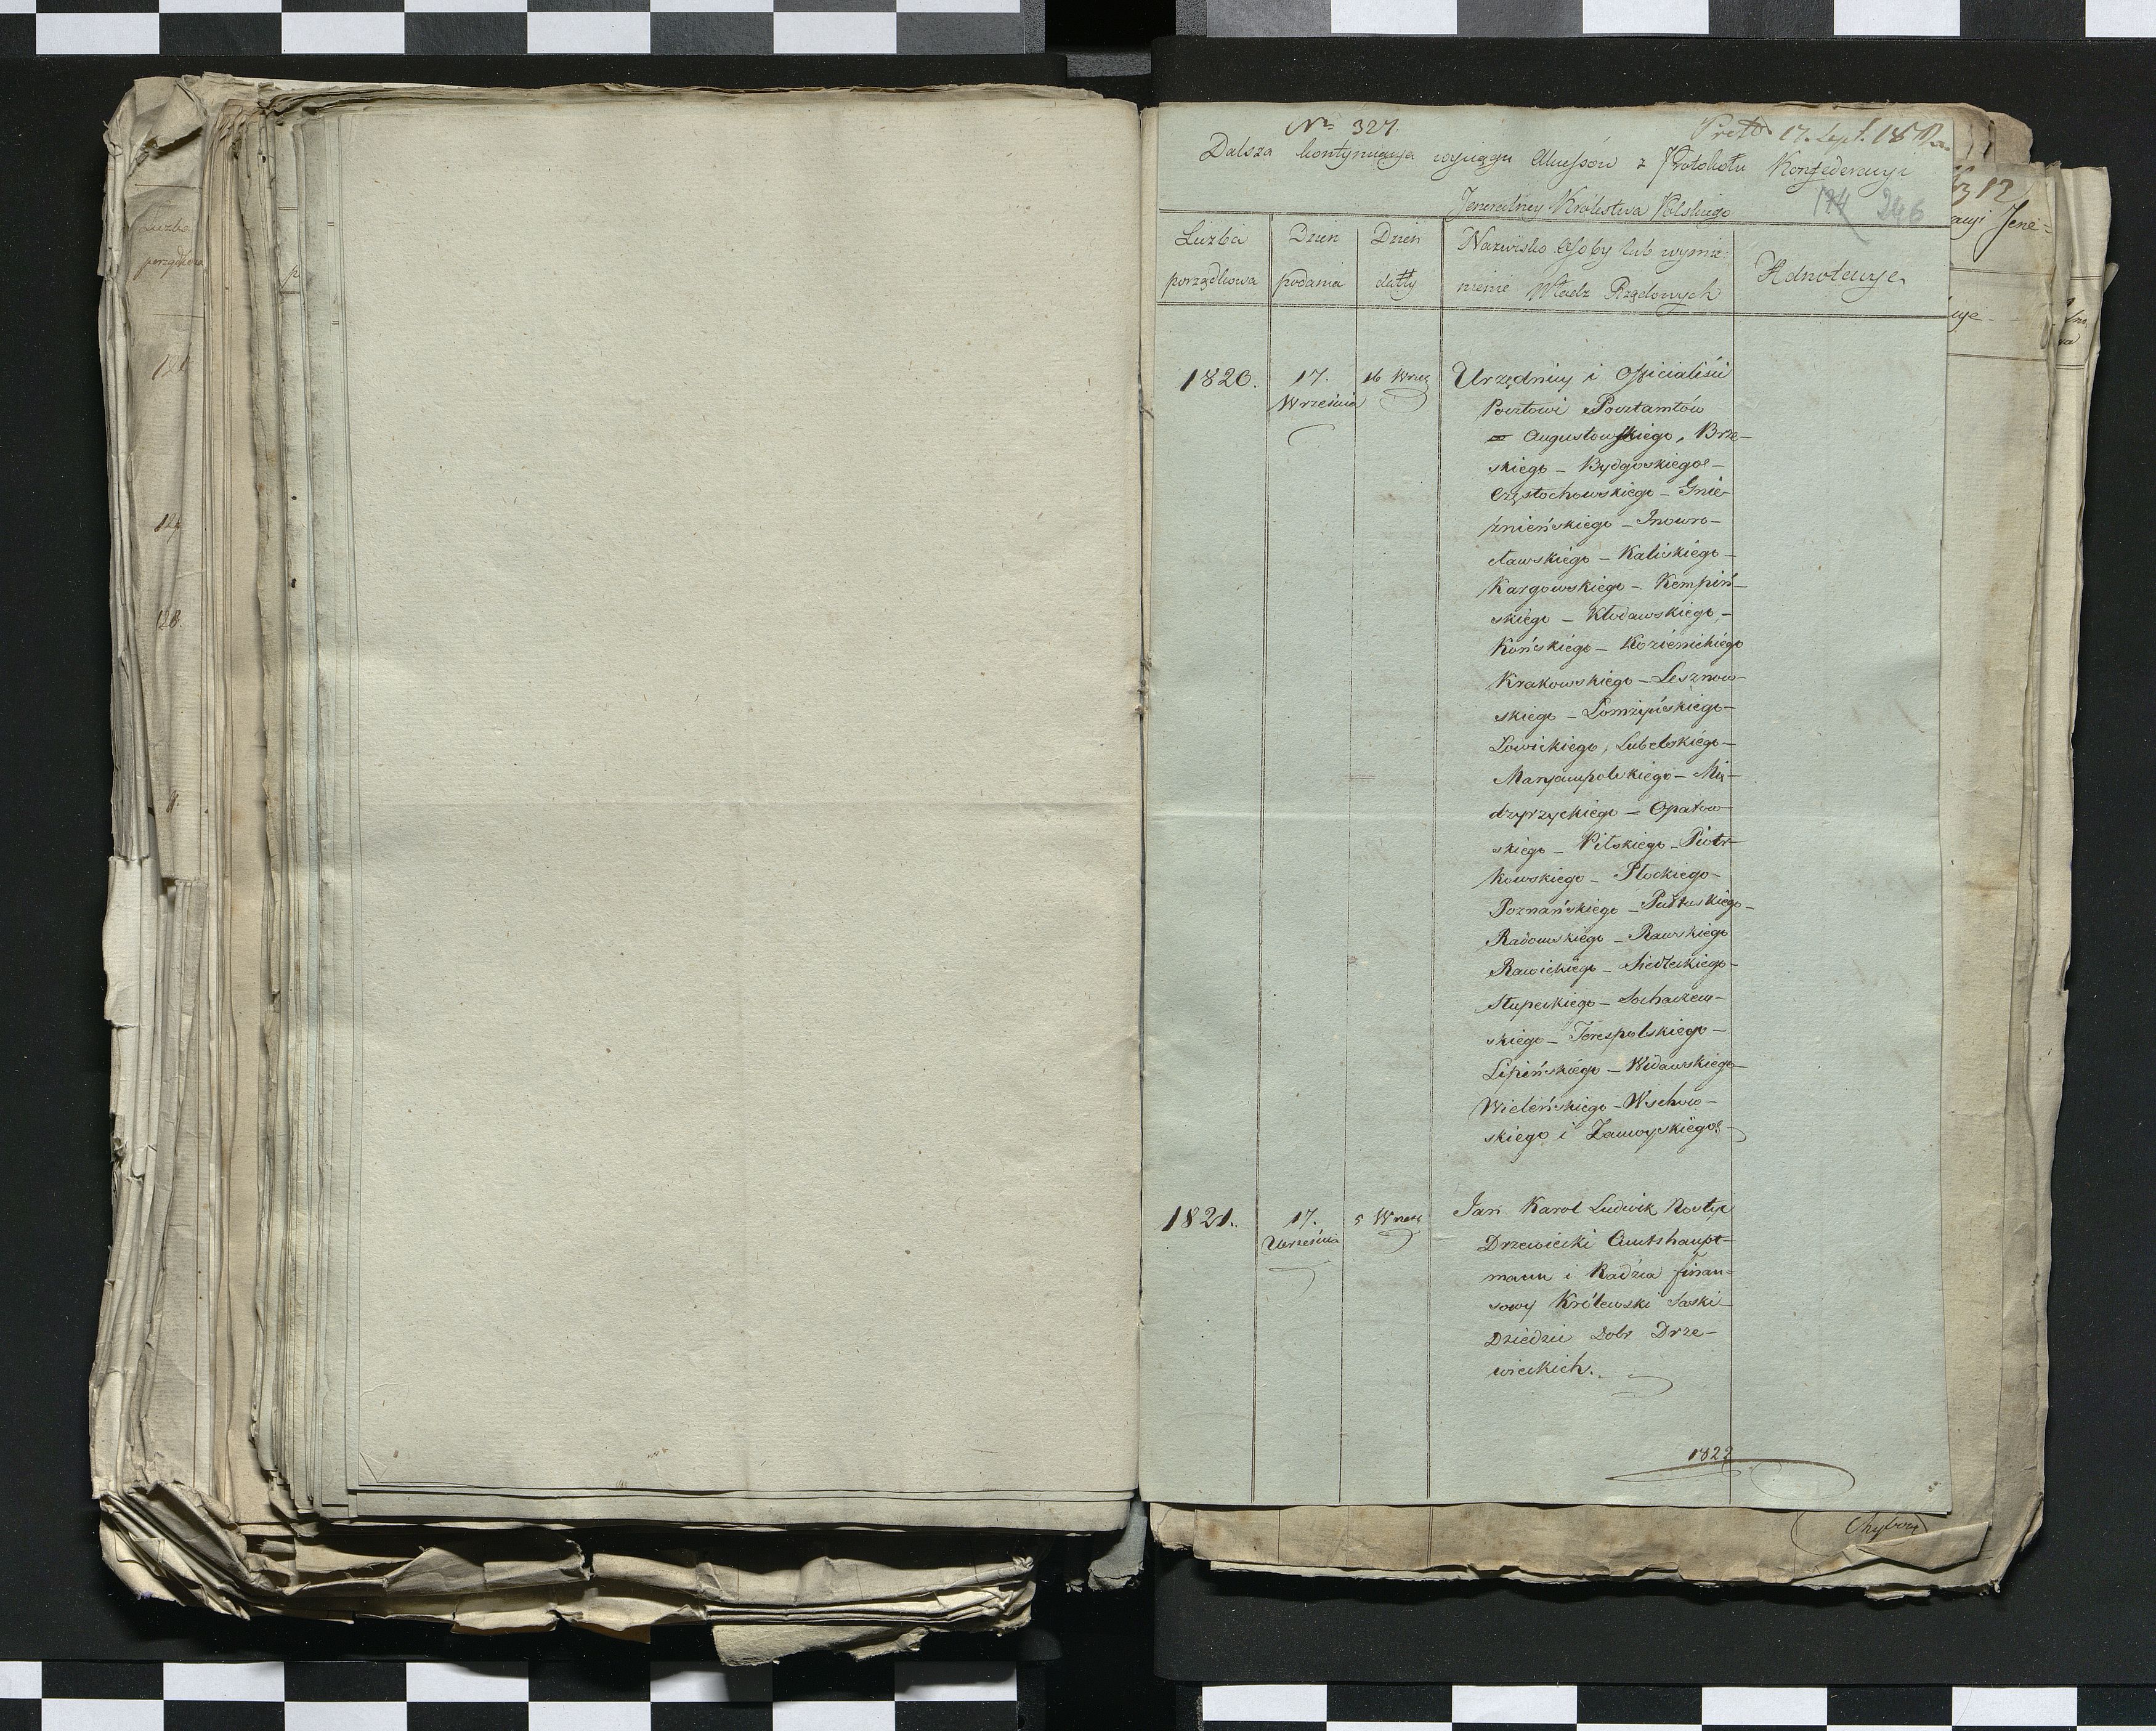 Liczba
porządkowa
128.
Nro 327.
17. Sept. 1812
Dalsza kontynuacya wyciągu Akcessów z Protokołu Konfederacyi
Jeneralney Królestwa Polskiego
174 246
Liczba porządkowa
Dzień podania
Dzień datty
Nazwisko Osoby lub wymie-
nienie Władz Rządowych
Adnotacye
1820.
17. Września
16 Wrześ
Urzędnicy i Officialiści
Pocztowi Pocztamtów
Augustowskiego, Brze-
skiego - Bydgoskiego -
Częstochowskiego - Gnie-
źnieńskiego - Inowro-
cławskiego - Kaliskiego -
Kargowskiego - Kempiń-
skiego - Kłodawskiego -
Końskiego - Kozienickiego
Krakowskiego - Lesznow-
skiego - Łomżyńskiego -
Łowickiego, Lubelskiego -
Maryampolskiego - Mię-
dzyrzyckiego - Opatow-
skiego - Pilskiego - Piotr-
kowskiego - Płockiego -
Poznańskiego - Pułtuskiego -
Radomskiego - Rawskiego
Rawickiego - Siedleckiego -
Słupeckiego - Sochaczew-
skiego - Terespolskiego -
Lipińskiego - Widawskiego -
Wieleńskiego - Wschow-
skiego i Zamoyskiego
1821.
17. Września
5 Wrześ
Jan Karol Ludwik Nostyc
Drzewiecki Amtshaupt-
mann i Radzca finan-
sowy Królewski Saski -
Dziedzic Dobr Drze-
wieckich.
1822